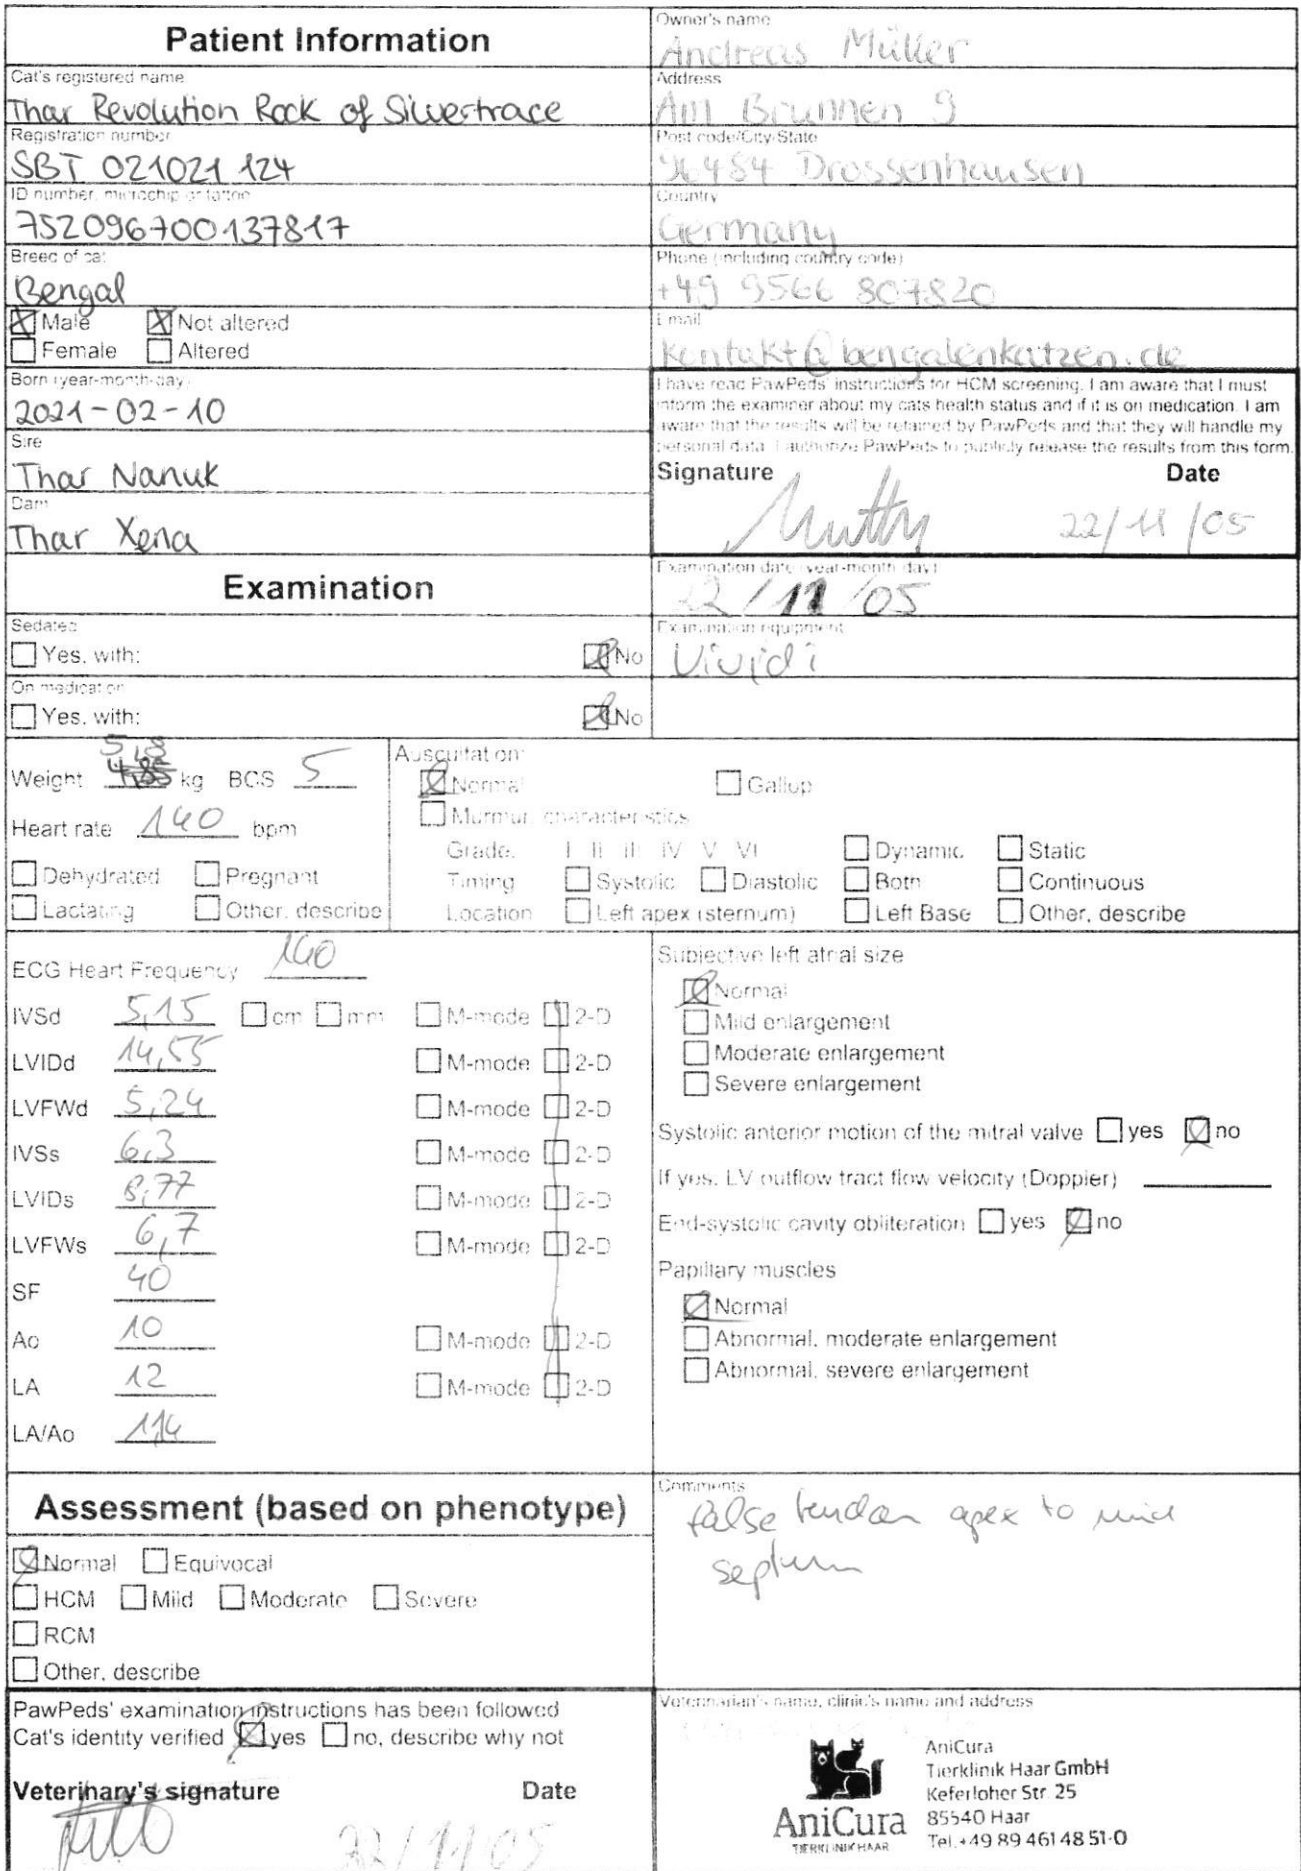 Patient Information
Cat's registered name
Thar Revolution Rock of Silvertrace
Registration number
SBT 021021 124
ID number, microchip or tattoo
752096700137817
Breed of cat
Bengal
Male Not altered
Female Altered
Born (year-month-day)
2021-02-10
Sire
Thar Nanuk
Dam
Thar Xena
Owner's name
Andreas Müller
Address
Am Brunnen 9
Post code/City/State
96484 Drossenhausen
Country
Germany
Phone (including country code)
+49 9566 807820
Email
kontakt@bengalenkatzen.de
I have read PawPeds' instructions for HCM screening. I am aware that I must
inform the examiner about my cats health status and if it is on medication. I am
aware that the results will be retained by PawPeds and that they will handle my
personal data. I authorize PawPeds to publicly release the results from this form.
Signature Date
22/11/05
Examination
Examination date (year-month-day)
22/11/05
Sedated
Yes, with: No
Examination equipment
Vivid i
On medication
Yes, with: No
5,8
Weight 4,85 kg BCS 5
Heart rate 140 bpm
Dehydrated Pregnant
Lactating Other, describe
Auscultation
Normal Gallop
Murmur, characteristics
Grade. I II III IV V VI Dynamic Static
Timing Systolic Diastolic Both Continuous
Location Left apex (sternum) Left Base Other, describe
ECG Heart Frequency 140
IVSd 5,15 cm mm M-mode 2-D
LVIDd 14,55 M-mode 2-D
LVFWd 5,24 M-mode 2-D
IVSs 6,3 M-mode 2-D
LVIDs 8,77 M-mode 2-D
LVFWs 6,7 M-mode 2-D
SF 40
Ao 10 M-mode 2-D
LA 12 M-mode 2-D
LA/Ao
Subjective left atrial size
Normal
Mild enlargement
Moderate enlargement
Severe enlargement
Systolic anterior motion of the mitral valve yes no
If yes, LV outflow tract flow velocity (Doppler)
End-systolic cavity obliteration yes no
Papillary muscles
Normal
Abnormal, moderate enlargement
Abnormal, severe enlargement
Assessment (based on phenotype)
Normal Equivocal
HCM Mild Moderate Severe
RCM
Other, describe
Comments
false tendon apex to mid
septum
PawPeds' examination instructions has been followed
Cat's identity verified yes no, describe why not
Veterinary's signature Date
22/11/05
Veterinarian's name, clinic's name and address
AniCura
TIERKLINIK HAAR
AniCura
Tierklinik Haar GmbH
Keferloher Str. 25
85540 Haar
Tel. +49 89 461 48 51-0